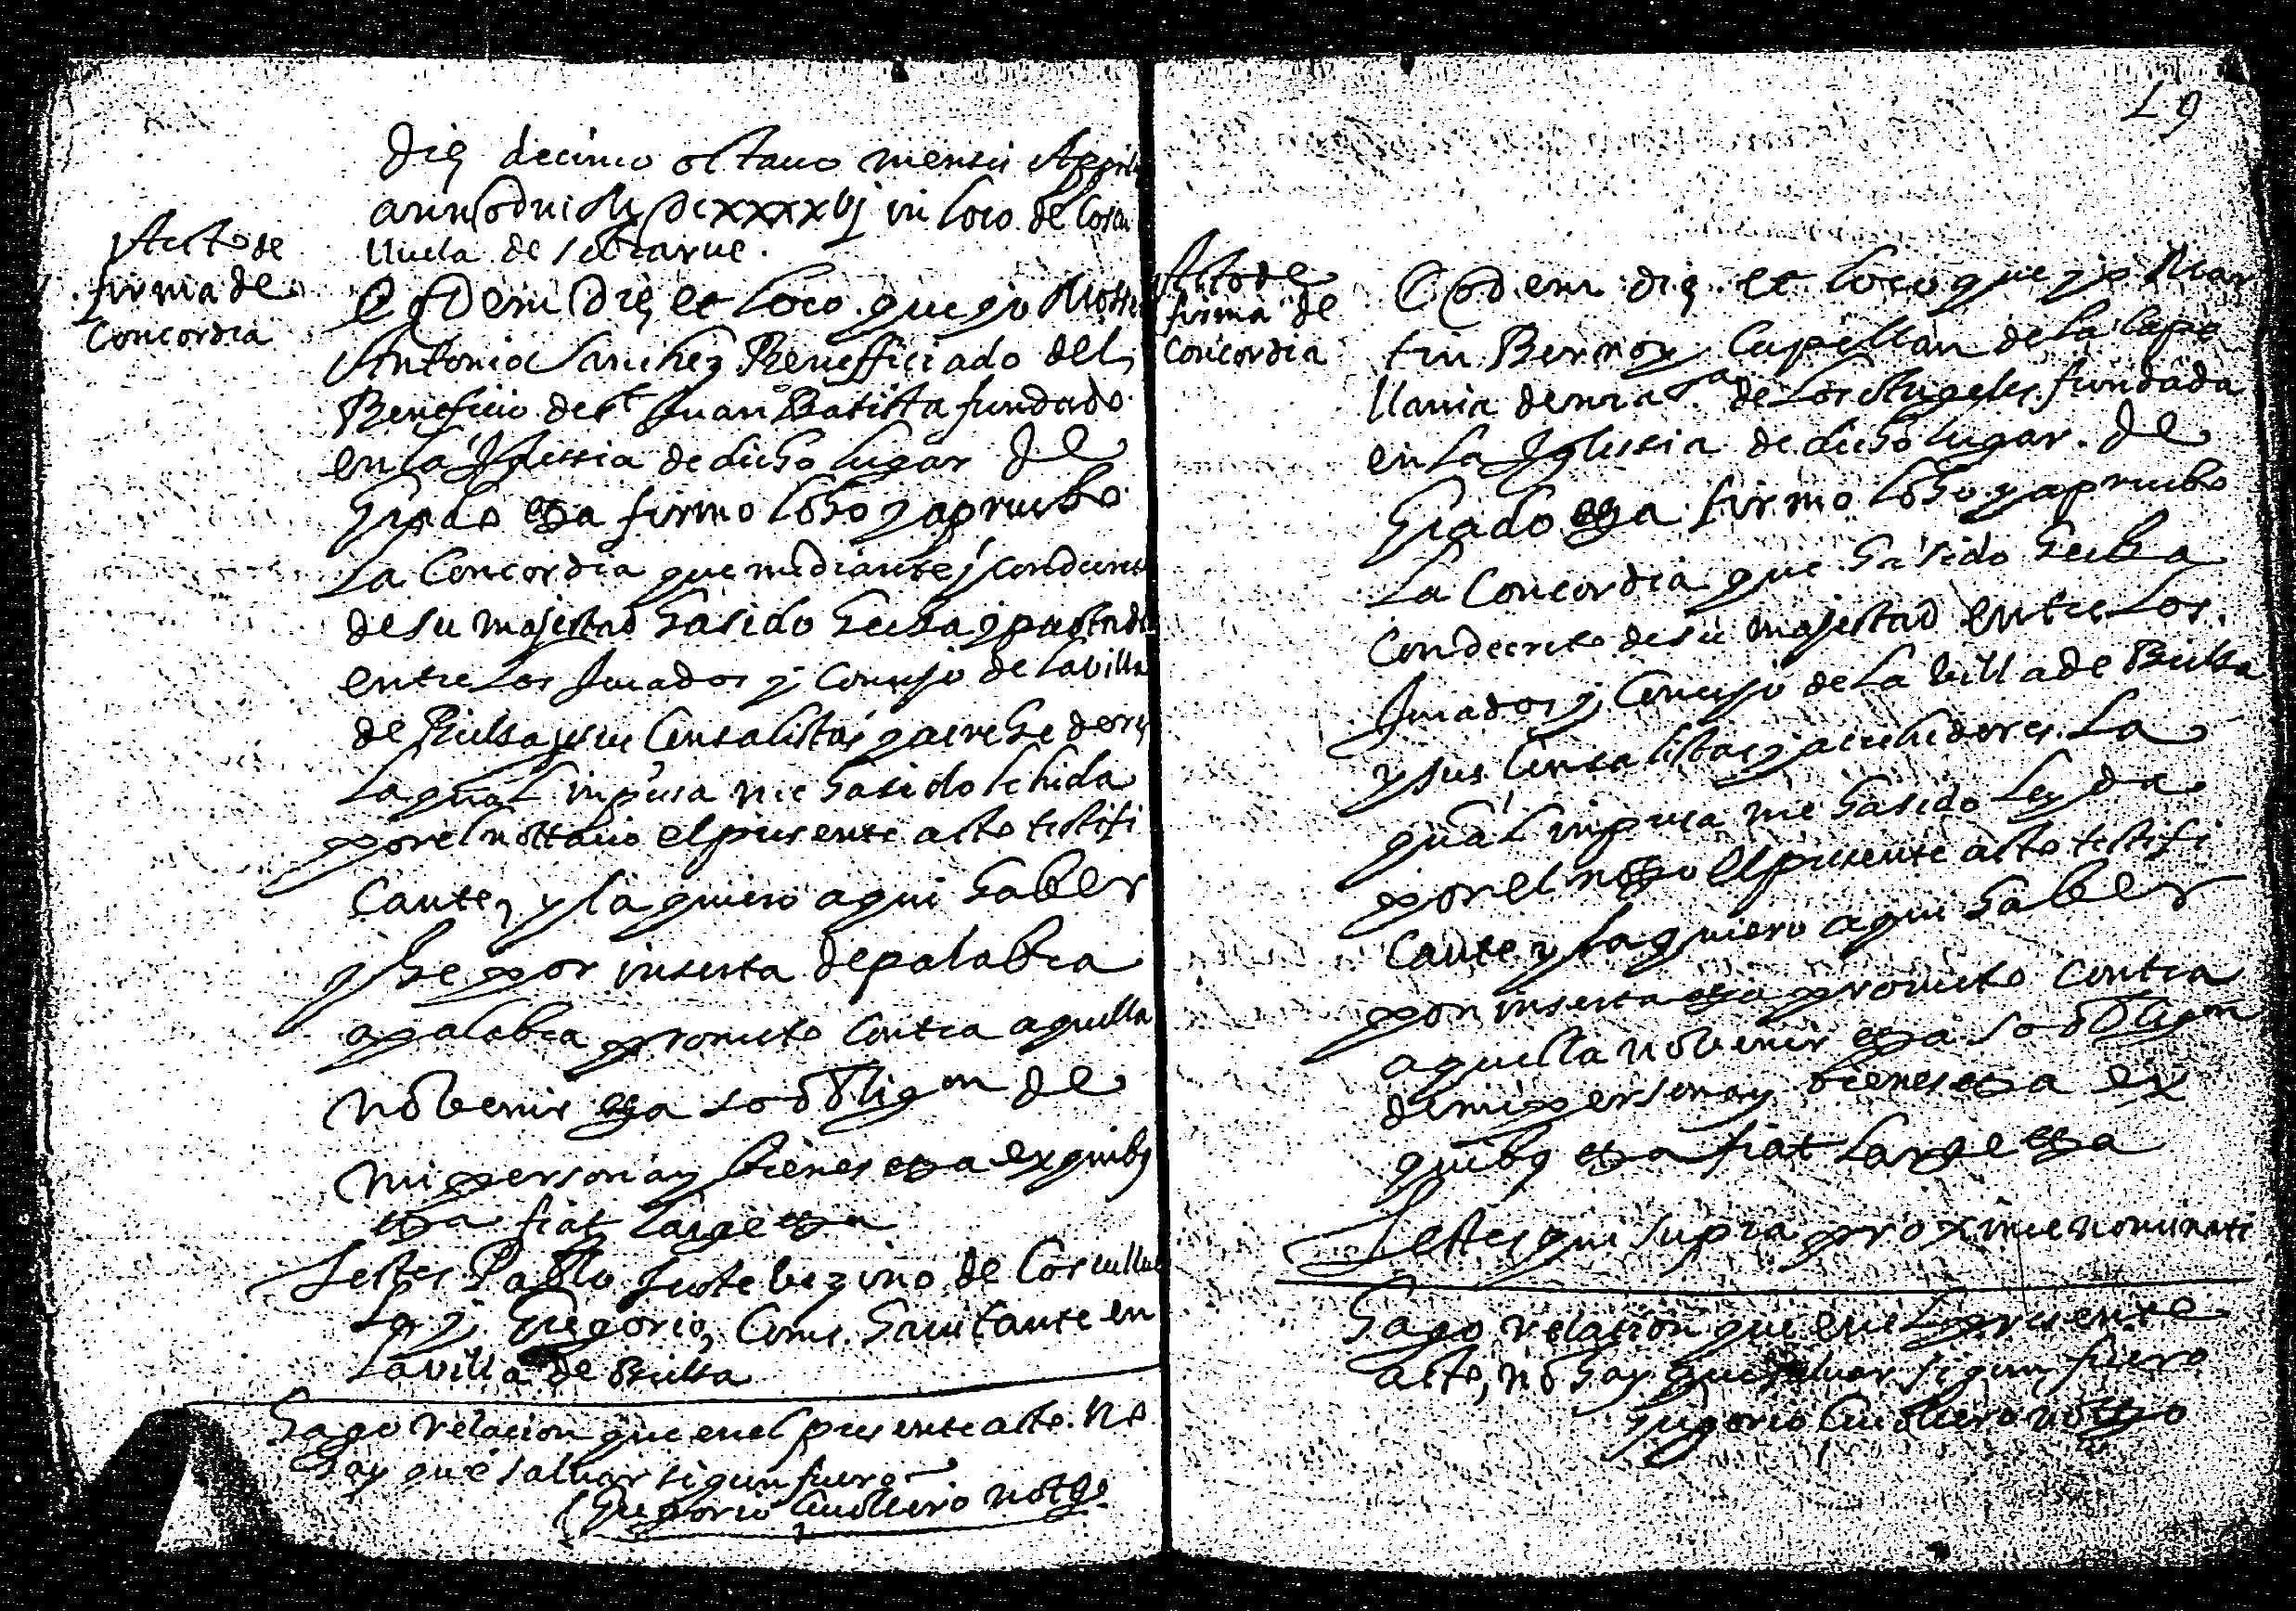 Die decimo octauo mensis Aprilis
anno dni M DCxxxxvj in loco de Coscu
lluela de sobrarue.
Acto de
firma de
Concordia
Eodem die et loco que yo Mossen
Antonio Sanchez Benefficiado del
Beneficio de St Juan Batista fundado
en la Iglessia de dicho lugar de
Grado etza firmo loho y apruebo
La Concordia que mediante y con decreto
de su majestad ha sido hecha y pactada
entre Los Jurados y Concejo de la villa
de Bielsa y sus Censalistas y acrehedores
La qual impresa me ha sido lehida
por el nottario el presente acto testifi
cante, y la quiero aqui haber
y he por inserta de palabra
a palabra prometo contra aquella
no benir etza so obligon de
mi persona y bienes etza ex quibus
etza fiat large etza
Testes Pablo Juste bezino de Coscullue
la y Gregorio, Coms. hauitante en
la villa de Bielsa
Hago relacion que en el presente acto. no
hay que saluar sigun fuero
Gregorio Cauallero notto
19
Acto de
firma de
Concordia
Eodem die et loco que yo Mar
tin Bernoy Capellan de la Cape
llania de nra Sa de Los Angeles fundada
en La Iglessia de dicho lugar. de
Grado etza firmo loho y apruebo
La Concordia que ha sido hecha
Con decreto de su majestad entre Los
Jurados y Concejo de La villa de Bielsa
y sus Censalistas y acrehedores La
qual impresa me ha sido Leyda
por el notto el presente acto testifi
cante y la quiero aqui haber
por inserta etza prometo contra
aquella no benir etza so obligon
de mi persona y bienes etza ex
quibus etza fiat Large etza
Testes qui supra proxime nominati
Hago relacion que en el presente
acto, no hay que saluar sigun fuero
Gregorio Cauallero notto